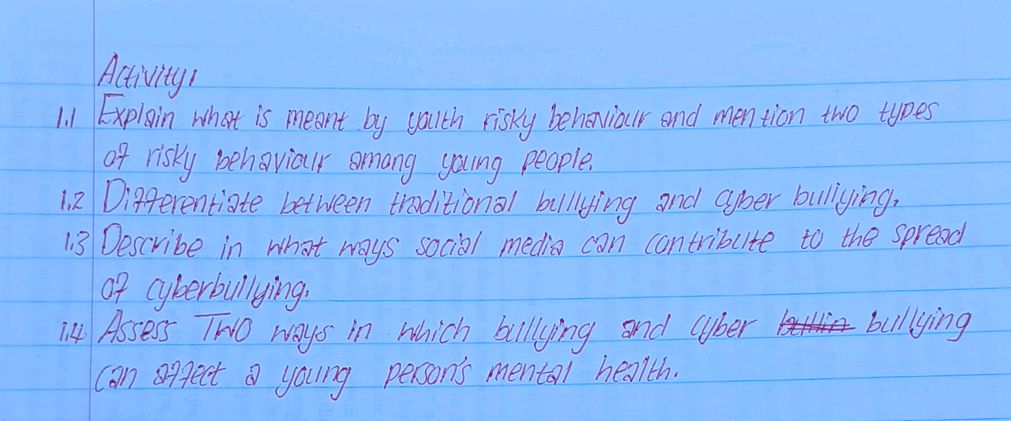 Activity:
1.1 Explain what is meant by youth risky behaviour and mention two types
of risky behaviour among young people.
1.2 Differentiate between traditional bullying and cyber bullying.
1.3 Describe in what ways social media can contribute to the spread
of cyberbullying.
1.4 Assess TWO ways in which bullying and cyber bullin bullying
can affect a young person's mental health.